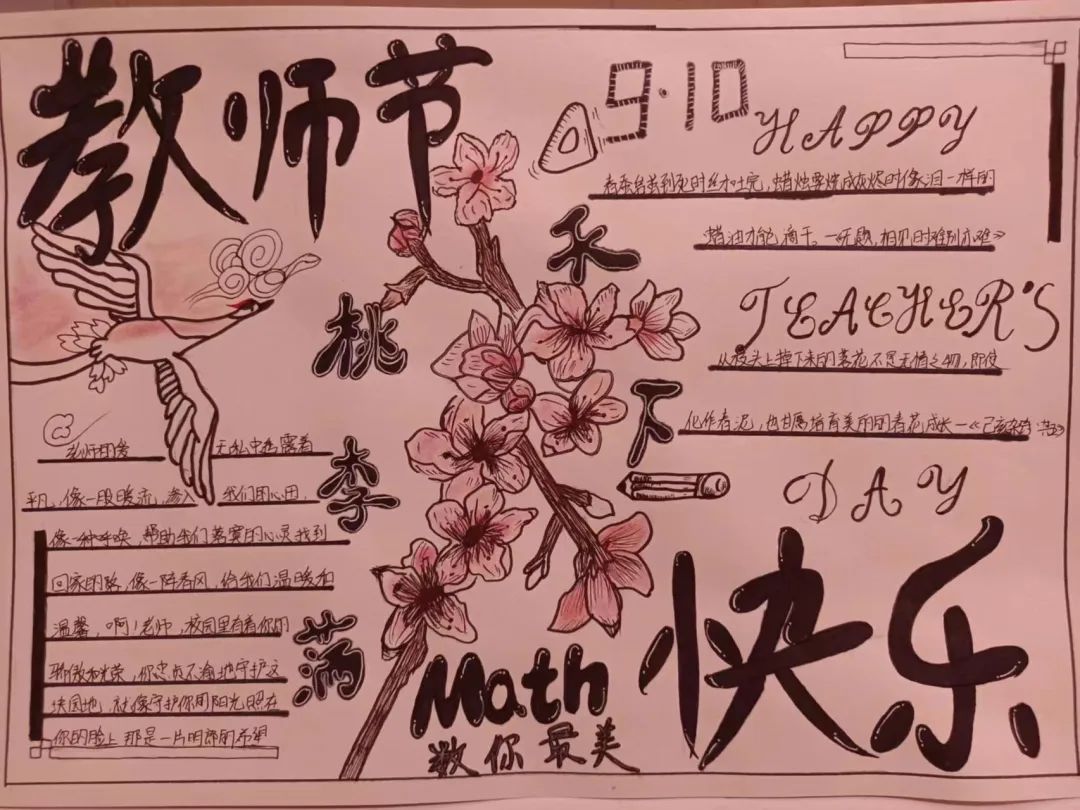 教师节
9.10
HAPPY
春蚕结茧到死时丝才吐完，蜡烛要烧成灰烬时像泪一样的
蜡油才能滴干。—无题，相见时难别亦难》
TEACHER'S
从枝头上掉下来的落花不是无情之物，即使
化作春泥，也甘愿培育美丽的春花成长—《己亥杂诗
DAY
快乐
桃李满
天下
老师的爱
无私中
平凡，像一股暖流，渗入
我们的心田，
像一种呼唤，帮助我们落寞的心灵找到
回家的路，像一阵春风，给我们温暖和
温馨，啊！老师，校园里有着你的
骄傲和光荣，你忠贞不渝地守护这
块园地，就像守护你的阳光照在
你的脸上那是一片明郎的希望
Math
数你最美